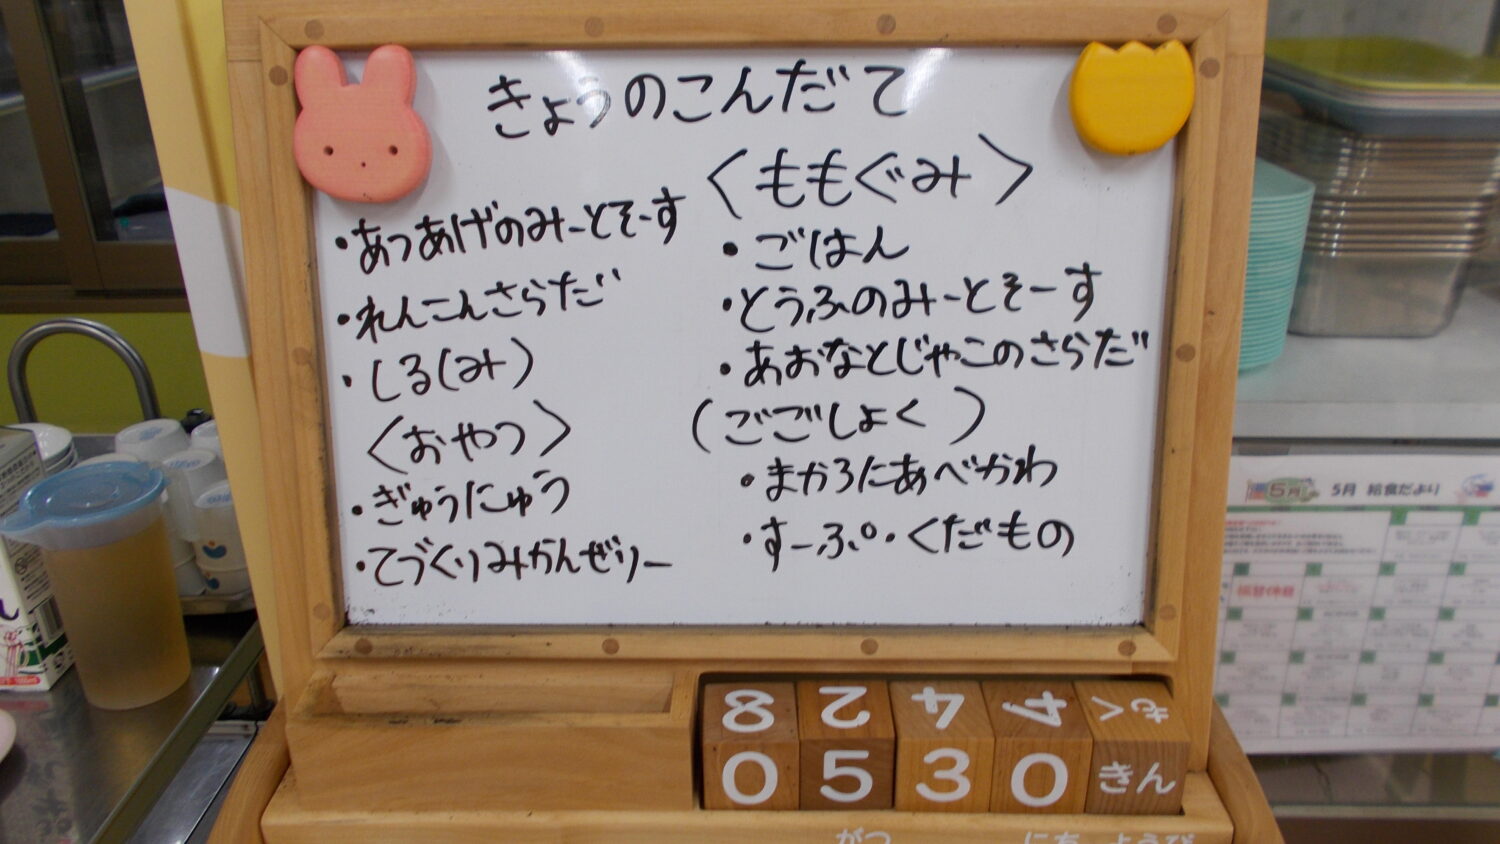 きょうのこんだて
・あつあげのみーとそーす
・れんこんさらだ
・しる(みそ)
〈おやつ〉
・ぎゅうにゅう
・てづくりみかんぜりー
〈ももぐみ〉
・ごはん
・とうふのみーとそーす
・あおなとじゃこのさらだ
(ごごしょく)
・まかろにあべかわ
・すーぷ・くだもの
8 2 4 4 もく
0 5 3 0 きん
がつ にち ようび
5月 5月 給食だより